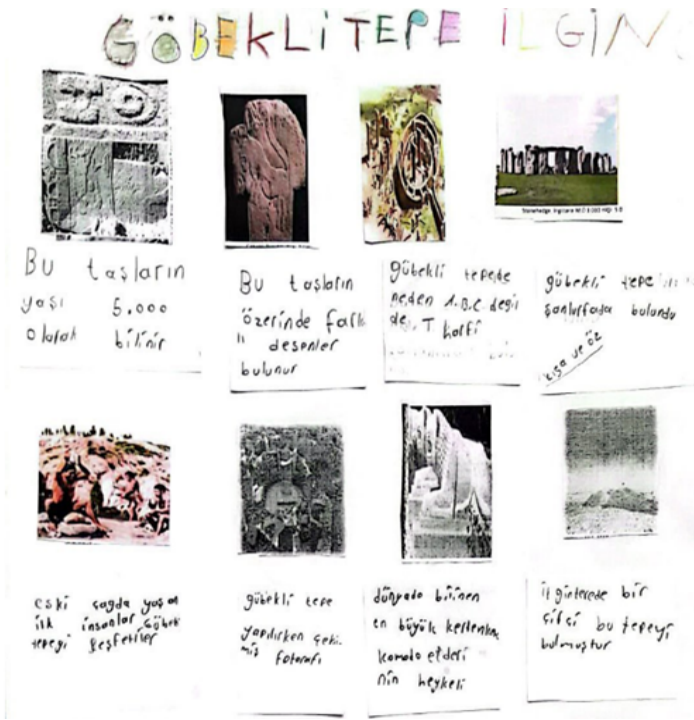 GÖBEKLİ TEPE İLGİN
Bu taşların
yaşı 5.000
olarak bilinir
Bu taşların
özerinde fark
lı desenler
bulunur
göbekli tepede
neden A.B.C. değil
de, T harfi
göbekli tepe
şanlıurfada bulundu
kısa ve öz
eski çagda yaşan
ilk insanlar göbek
tepeyi keşfetiler
göbekli tepe
yapılırken çeki
miş fotorafı
dünyada bilinen
en büyük kertenkele
komodo ejderi
nin heykeli
ilginterede bir
çifçi bu tepeyi
bulmuştur